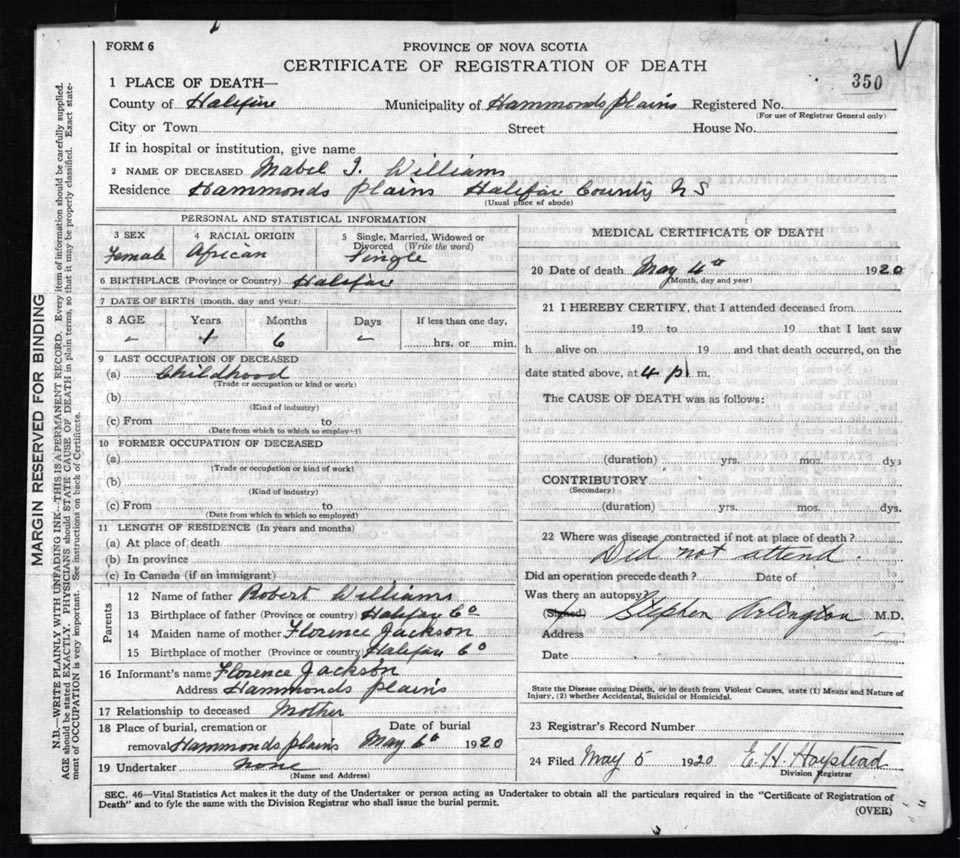 FORM 6
PROVINCE OF NOVA SCOTIA
CERTIFICATE OF REGISTRATION OF DEATH
350
1 PLACE OF DEATH—
County of Halifax Municipality of Hammonds Plains Registered No.
(For use of Registrar General only)
City or Town Street House No.
If in hospital or institution, give name
2 NAME OF DECEASED Mabel I. Williams
Residence Hammonds Plains Halifax County N S
(Usual place of abode)
PERSONAL AND STATISTICAL INFORMATION
3 SEX Female
4 RACIAL ORIGIN African
5 Single, Married, Widowed or Divorced (Write the word) Single
6 BIRTHPLACE (Province or Country) Halifax
7 DATE OF BIRTH (month, day and year)
8 AGE Years Months Days If less than one day,
– 1 6 – hrs. or min.
9 LAST OCCUPATION OF DECEASED
(a) Childhood
(Trade or occupation or kind or work)
(b)
(Kind of industry)
(c) From to
(Date from which to which so employed)
10 FORMER OCCUPATION OF DECEASED
(a)
(Trade or occupation or kind of work)
(b)
(Kind of industry)
(c) From to
(Date from which to which so employed)
11 LENGTH OF RESIDENCE (In years and months)
(a) At place of death
(b) In province
(c) In Canada (if an immigrant)
Parents
12 Name of father Robert Williams
13 Birthplace of father (Province or country) Halifax Co
14 Maiden name of mother Florence Jackson
15 Birthplace of mother (Province or country) Halifax Co
16 Informant's name Florence Jackson
Address Hammonds Plains
17 Relationship to deceased Mother
18 Place of burial, cremation or Date of burial
removal Hammonds Plains May 6th 1920
19 Undertaker none
(Name and Address)
MEDICAL CERTIFICATE OF DEATH
20 Date of death May 4th 1920
(Month, day and year)
21 I HEREBY CERTIFY, that I attended deceased from
19 to 19 that I last saw
h alive on 19 and that death occurred, on the
date stated above, at 4 p m.
The CAUSE OF DEATH was as follows:
(duration) yrs. mos. dys
CONTRIBUTORY
(Secondary)
(duration) yrs. mos. dys.
22 Where was disease contracted if not at place of death?
Did not attend.
Did an operation precede death? Date of
Was there an autopsy?
(Signed) Stephen Arlington M.D.
Address
Date
State the Disease causing Death, or in death from Violent Causes, state (1) Means and Nature of
Injury, (2) whether Accidental, Suicidal or Homicidal.
23 Registrar's Record Number
24 Filed May 5 1920 E. H. Haystead
Division Registrar
SEC. 46—Vital Statistics Act makes it the duty of the Undertaker or person acting as Undertaker to obtain all the particulars required in the "Certificate of Registration of
Death" and to fyle the same with the Division Registrar who shall issue the burial permit.
(OVER)
MARGIN RESERVED FOR BINDING
N.B.—WRITE PLAINLY WITH UNFADING INK—THIS IS A PERMANENT RECORD. Every item of information should be carefully supplied.
AGE should be stated EXACTLY. PHYSICIANS should STATE CAUSE OF DEATH in plain terms, so that it may be properly classified. Exact state-
ment of OCCUPATION is very important. See instructions on back of Certificate.